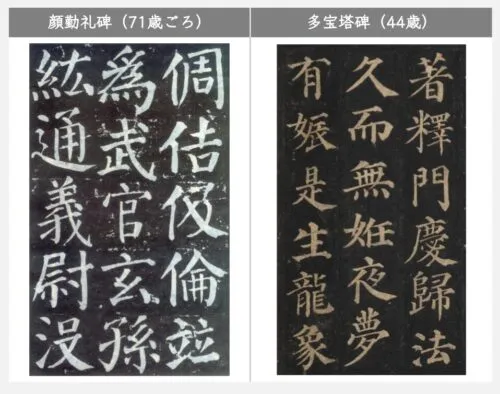 顔勤礼碑（71歳ごろ）
倜佶伋倫竝
為武官玄孫
紘通義尉没
多宝塔碑（44歳）
著釋門慶歸法
久而無姙夜夢
有娠是生龍象